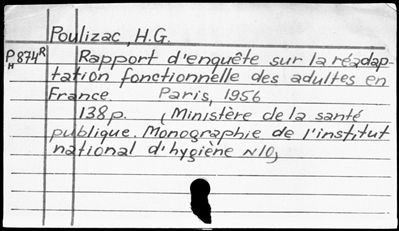 Poulizac, H.G.
P874R Rapport d'enquête sur la réadap-
H tation fonctionnelle des adultes en
France. Paris, 1956
138p. (Ministère de la santé
publique. Monographie de l'institut
national d'hygiène N10)